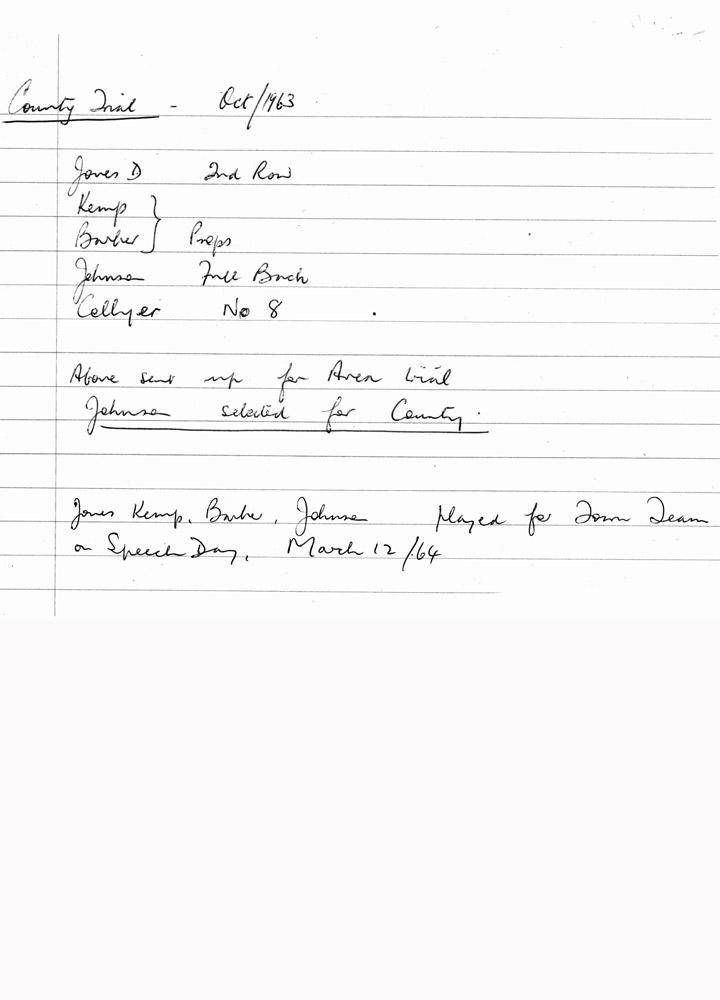 County Trial - Oct/1963
Jones D 2nd Row
Kemp
Barber } Props
Johnson Full Back
Collyer No 8
Above sent up for Area trial
Johnson selected for County.
Jones Kemp, Barber, Johnson played for Town Team
on Speech Day, March 12/64